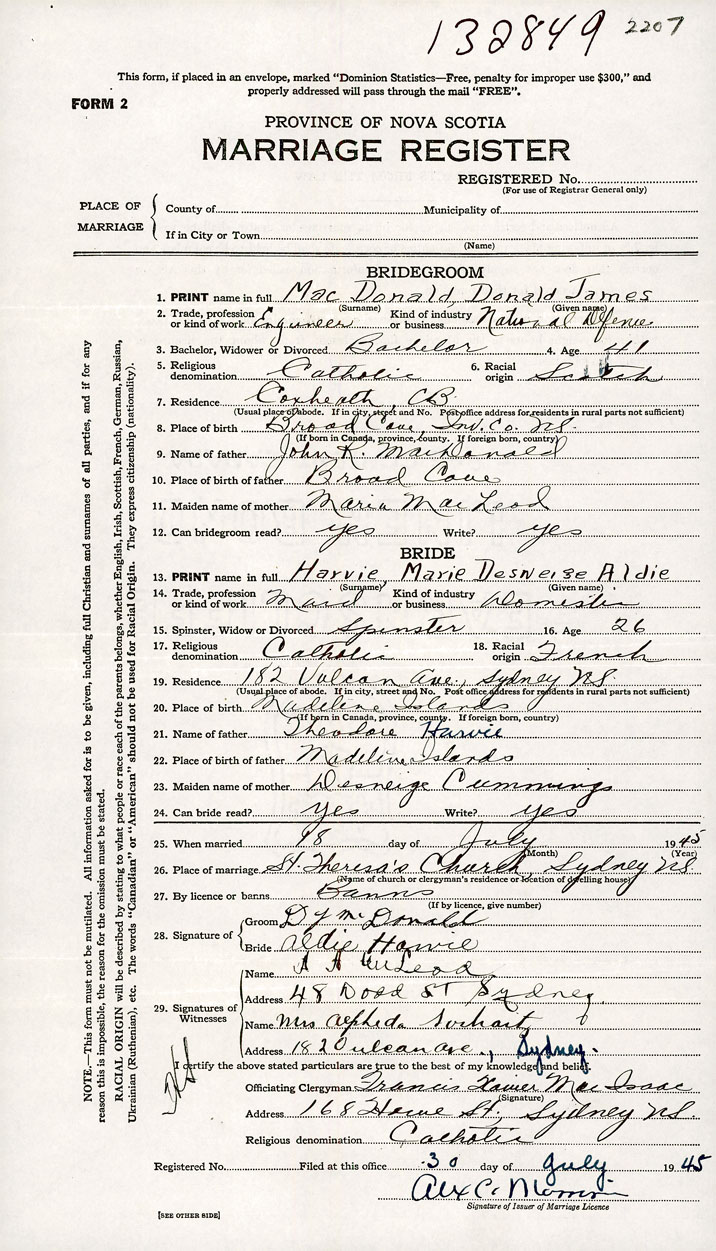 132849 2207
This form, if placed in an envelope, marked "Dominion Statistics—Free, penalty for improper use $300," and
properly addressed will pass through the mail "FREE".
FORM 2
PROVINCE OF NOVA SCOTIA
MARRIAGE REGISTER
REGISTERED No.
(For use of Registrar General only)
PLACE OF MARRIAGE
County of Municipality of
If in City or Town
(Name)
BRIDEGROOM
1. PRINT name in full Mac Donald, Donald James
(Surname) (Given name)
2. Trade, profession or kind of work Engineer Kind of industry or business National Defence
3. Bachelor, Widower or Divorced Bachelor 4. Age 41
5. Religious denomination Catholic 6. Racial origin Scotch
7. Residence Coxheath, CB
(Usual place of abode. If in city, street and No. Post office address for residents in rural parts not sufficient)
8. Place of birth Broad Cove, Inv. Co. NS.
(If born in Canada, province, county. If foreign born, country)
9. Name of father John R. MacDonald
10. Place of birth of father Broad Cove
11. Maiden name of mother Maria MacLeod
12. Can bridegroom read? yes Write? yes
BRIDE
13. PRINT name in full Harvie, Marie Desneige Aldie
(Surname) (Given name)
14. Trade, profession or kind of work Maid Kind of industry or business Domestic
15. Spinster, Widow or Divorced Spinster 16. Age 26
17. Religious denomination Catholic 18. Racial origin French
19. Residence 182 Vulcan Ave., Sydney NS
(Usual place of abode. If in city, street and No. Post office address for residents in rural parts not sufficient)
20. Place of birth Madeline Islands
(If born in Canada, province, county. If foreign born, country)
21. Name of father Theodore Harvie
22. Place of birth of father Madeline Islands
23. Maiden name of mother Desneige Cummings
24. Can bride read? yes Write? yes
25. When married 18 day of July 1945
(Month) (Year)
26. Place of marriage St. Theresa's Church, Sydney NS.
(Name of church or clergyman's residence or location of dwelling house)
27. By licence or banns Banns
(If by licence, give number)
28. Signature of
Groom D J McDonald
Bride Aldie Harvie
29. Signatures of Witnesses
Name A A McLeod
Address 48 Dodd St Sydney
Name Mrs Alpheda
Address 182 Vulcan ave., Sydney.
I certify the above stated particulars are true to the best of my knowledge and belief.
Officiating Clergyman Francis Xavier MacIsaac
(Signature)
Address 168 Howe St., Sydney NS.
Religious denomination Catholic
Registered No. Filed at this office 30 day of July 1945
Alex C.
Signature of Issuer of Marriage Licence
[SEE OTHER SIDE]
NOTE.—This form must not be mutilated. All information asked for is to be given, including full Christian and surnames of all parties, and if for any
reason this is impossible, the reason for the omission must be stated.
RACIAL ORIGIN will be described by stating to what people or race each of the parents belongs, whether English, Irish, Scottish, French, German, Russian,
Ukrainian (Ruthenian), etc. The words "Canadian" or "American" should not be used for Racial Origin. They express citizenship (nationality).